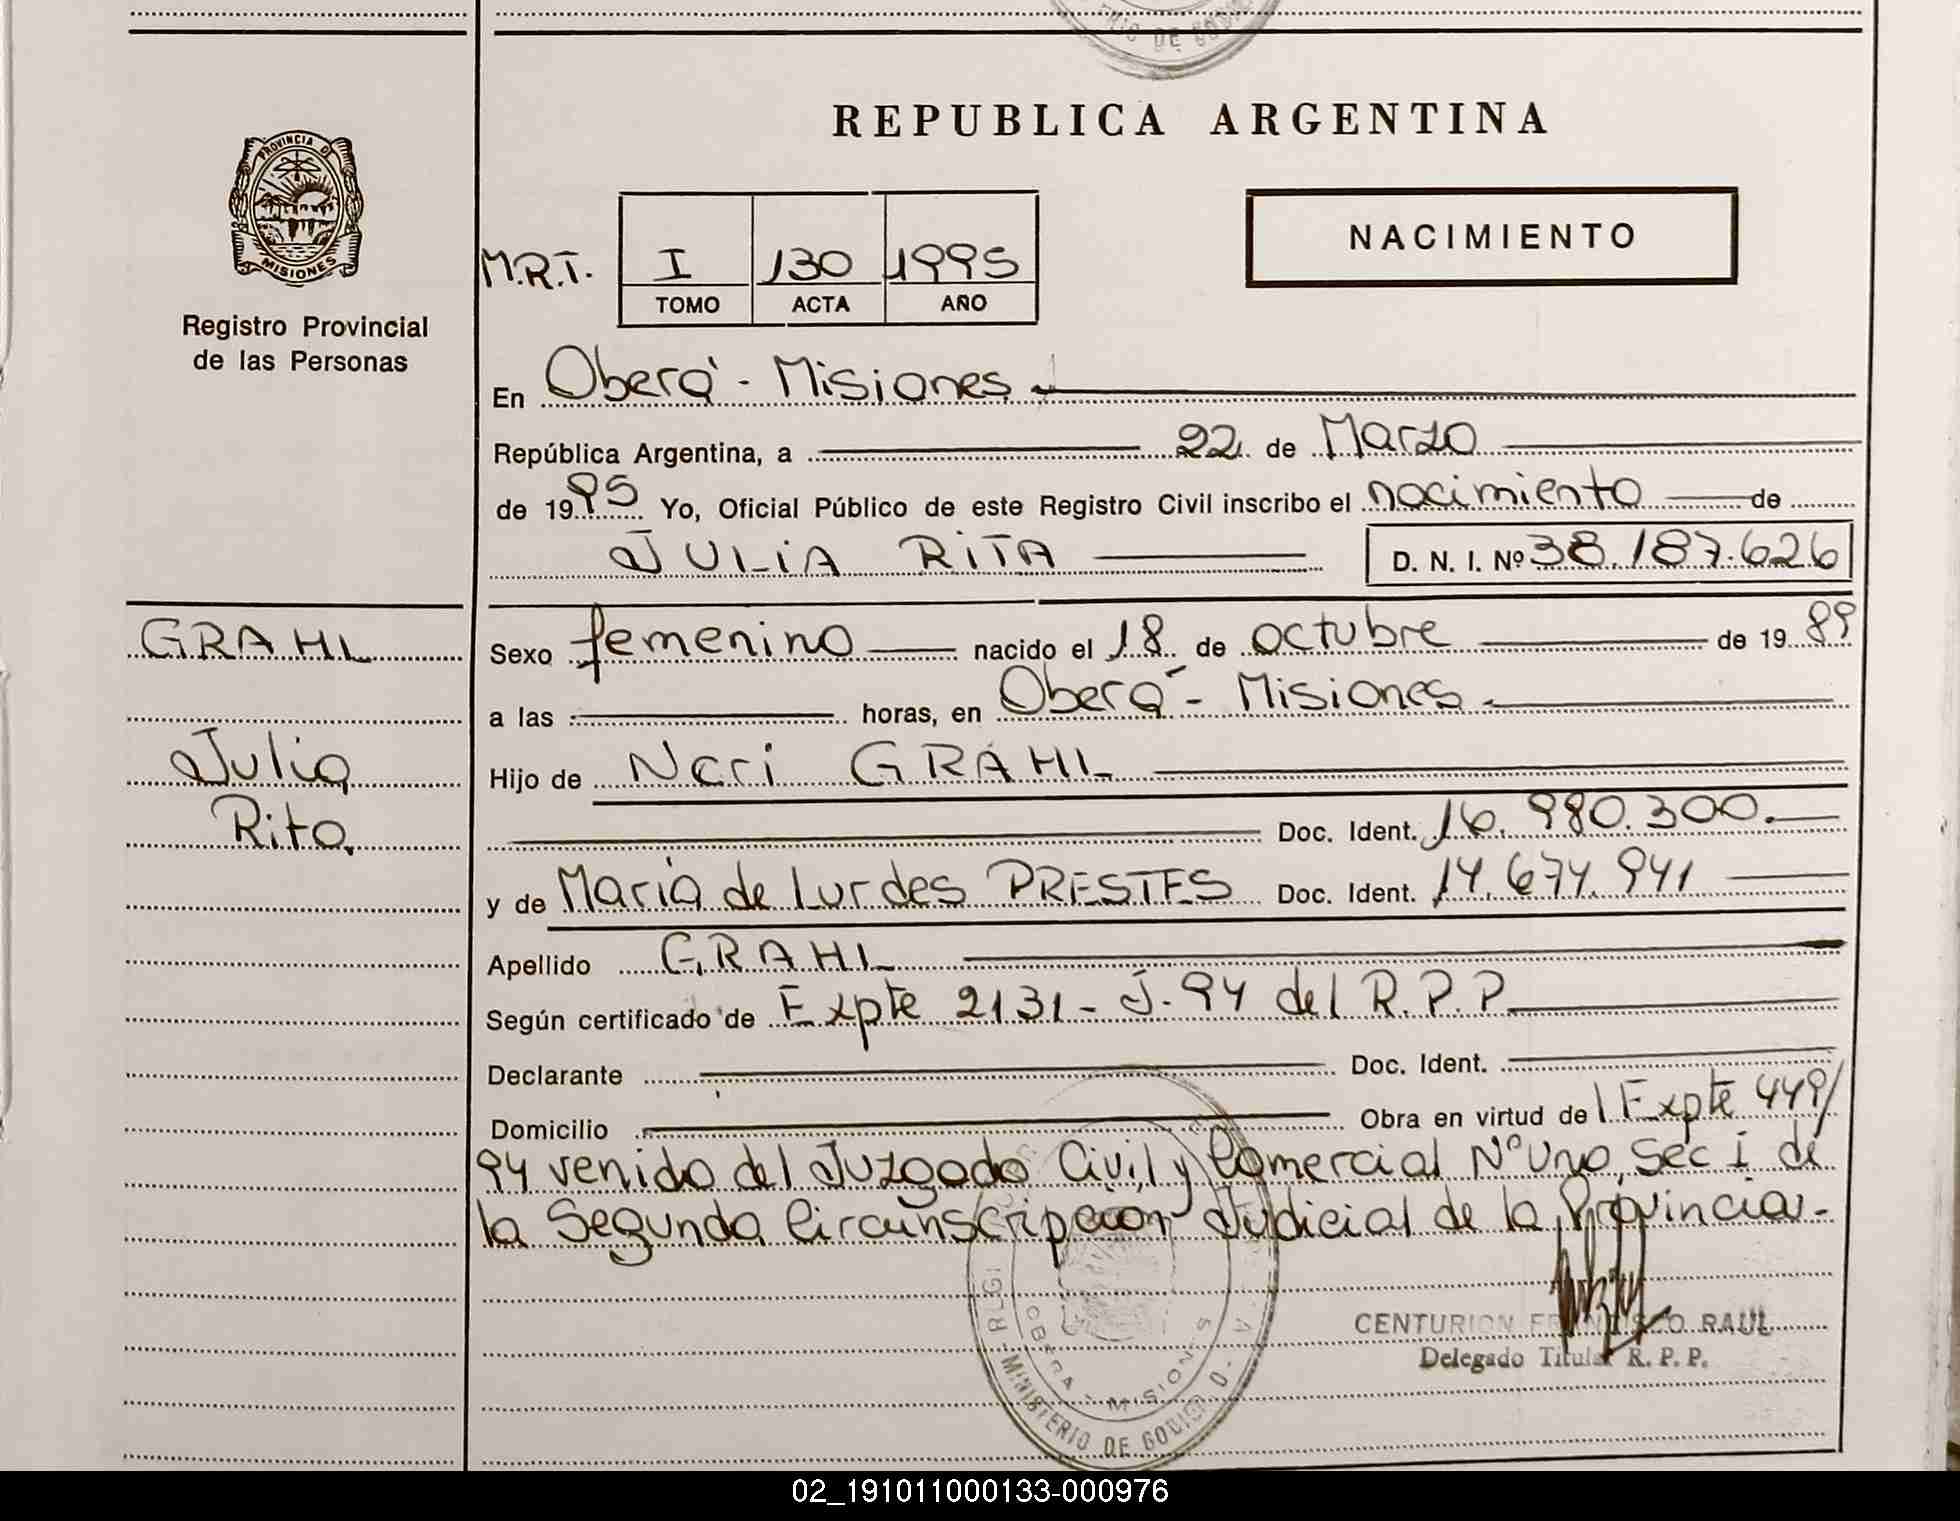 RIO DE GOBIE
REPUBLICA ARGENTINA
PROVINCIA DE
MISIONES
Registro Provincial
de las Personas
NACIMIENTO
M.R.T. I 130 1995
TOMO ACTA AÑO
En Oberá - Misiones
República Argentina, a 22 de Marzo
de 1995 Yo, Oficial Público de este Registro Civil inscribo el nacimiento de
JULIA RITA D. N. I. Nº 38.187.626
GRAHL
Julia
Rita
Sexo femenino nacido el 18 de octubre de 1989
a las horas, en Oberá - Misiones
Hijo de Neri GRAHL
Doc. Ident. 16.980.300.
y de María de Lurdes PRESTES Doc. Ident. 14.674.941
Apellido GRAHL
Según certificado de Expte 2131 - J - 94 del R.P.P
Declarante Doc. Ident.
Domicilio Obra en virtud del Expte 449/
94 venido del Juzgado Civil y Comercial Nº Uno, Sec I de
la Segunda Circunscripción Judicial de la Provincia -
CENTURION FRANCISCO RAUL
Delegado Titular R. P. P.
OBERA - MISIONES
MINISTERIO DE GOBIERNO
02_191011000133-000976